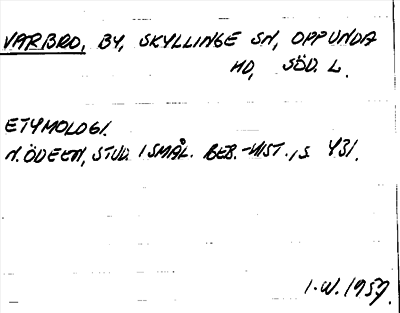 VARBRO, BY, SKYLLINGE SN, OPPUNDA
HD, SÖD. L.
ETYMOLOGI.
N. ÖDEEN, STUD. I SMÅL. BEB.-HIST., S. 431.
I.W. 1959.